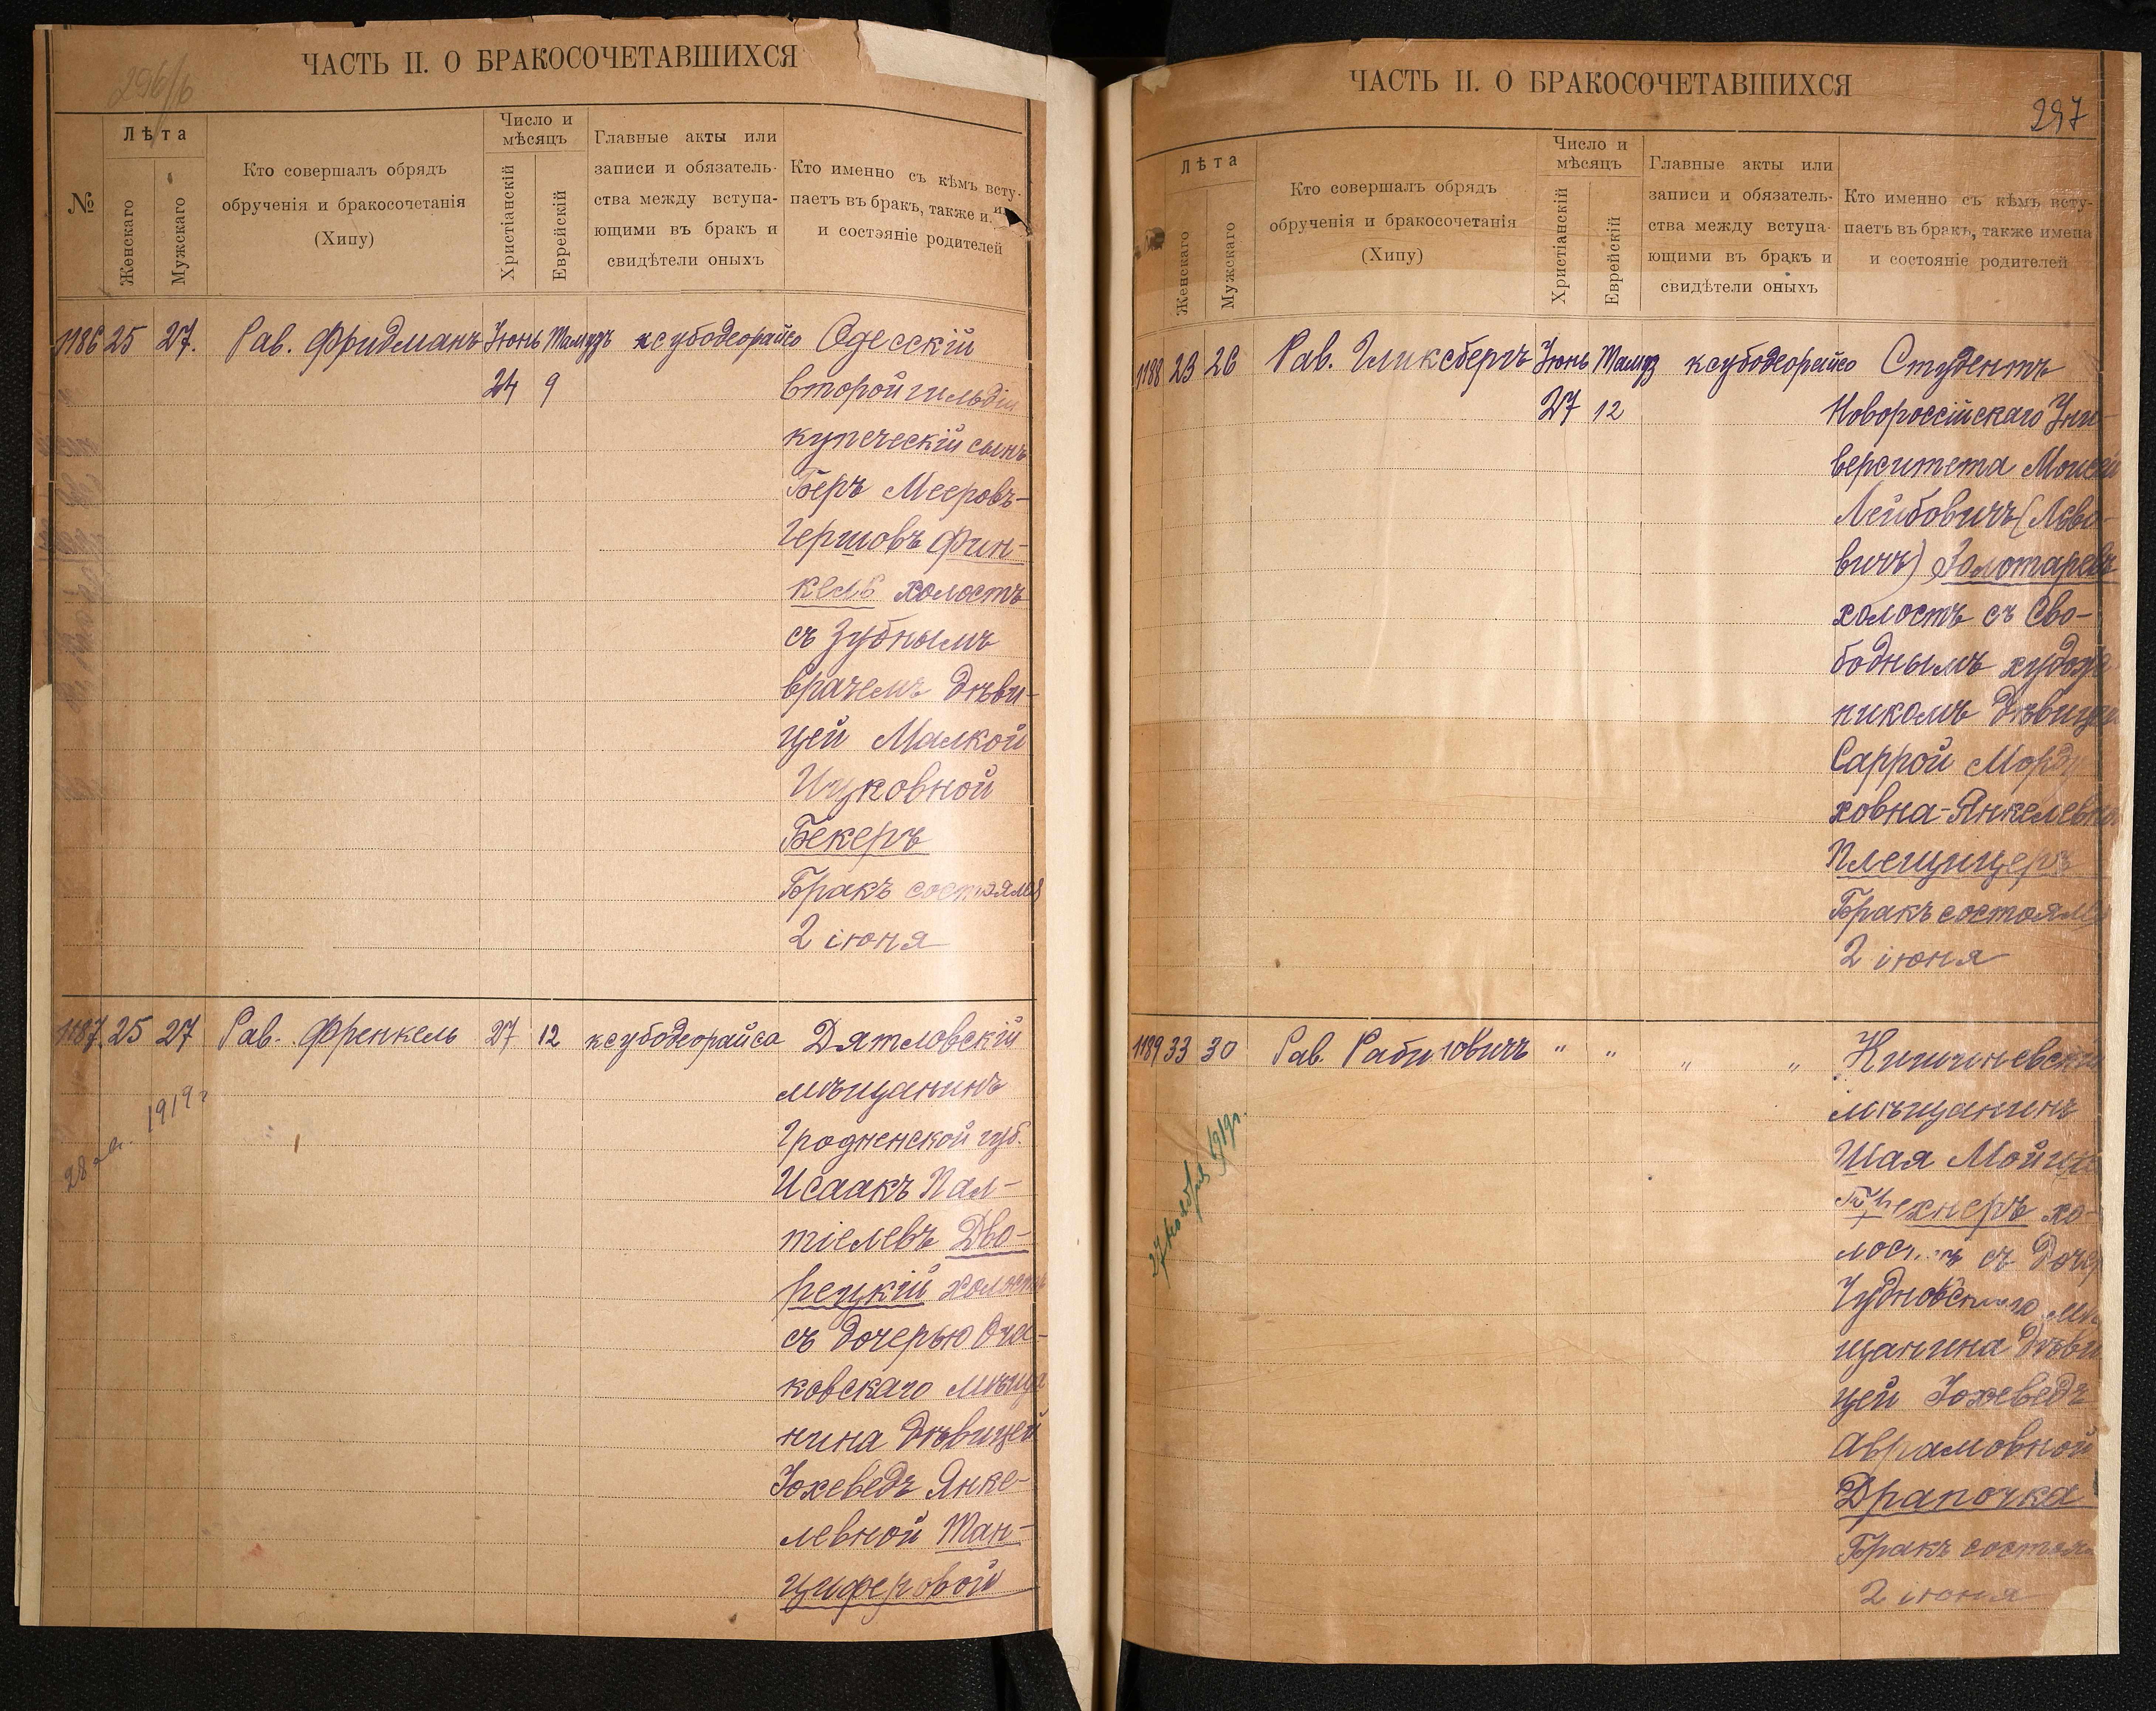 296/б
ЧАСТЬ II. О БРАКОСОЧЕТАВШИХСЯ
№
Лѣта
Женскаго
Мужскаго
Кто совершалъ обрядъ
обрученія и бракосочетанія
(Хипу)
Число и
мѣсяцъ
Христіанскій
Еврейскій
Главные акты или
записи и обязатель-
ства между вступа-
ющими въ бракъ и
свидѣтели оныхъ
Кто именно съ кѣмъ всту-
паетъ въ бракъ, также и
и состэяніе родителей
1186 25 27. Рав. Фридманъ Іюнь Тамузъ ксубодеорайсо Одесскій
24 9 второй гильдіи
купеческій сынъ
Беръ Мееровъ-
Гершовъ Фин-
кель холостъ
съ зубнымъ
врачемъ дѣви-
цей Малкой
Ицковной
Бекеръ
Бракъ состоялся
2 іюня
1187 25 27 Рав. Френкель 27 12 ксубодеорайса Дятловскій
мѣщанинъ
Гродненской губ.
Исаакъ Пал-
тіелевъ Дво-
рецкій холостъ
съ дочерью Оча-
ковскаго мѣща
нина дѣвицей
Іохеведъ Янке-
левной Тан-
циферовой
28 1919 г
ЧАСТЬ II. О БРАКОСОЧЕТАВШИХСЯ
297
Лѣта
Женскаго
Мужскаго
Кто совершалъ обрядъ
обрученія и бракосочетанія
(Хипу)
Число и
мѣсяцъ
Христіанскій
Еврейскій
Главные акты или
записи и обязатель-
ства между вступа-
ющими въ бракъ и
свидѣтели оныхъ
Кто именно съ кѣмъ всту-
паетъ въ бракъ, также имена
и состояніе родителей
1188 23 26 Рав. Гликсбергъ Іюнь Тамуз ксубодеорайсо Студентъ
27 12 Новороссійскаго Уни-
верситета Моисей
Лейбовичъ (Льво-
вичъ) Золотаревъ
холостъ съ сво-
боднымъ худож
никомъ дѣвицей
Саррой Морду
ховна-Янкелевна
Плещицеръ
Бракъ состоялся
2 іюня
1189 33 30 Рав. Рабиновичъ " " " " Кишиневскій
мѣщанинъ
Шая Мойше
хнеръ хо-
лостъ съ дочер
Чудновскаго мѣ
щанина дѣви
цей Іохеведъ
Аврамовной
Драпочка
Бракъ состоял
2 іюня
27 ноября 1919 г.